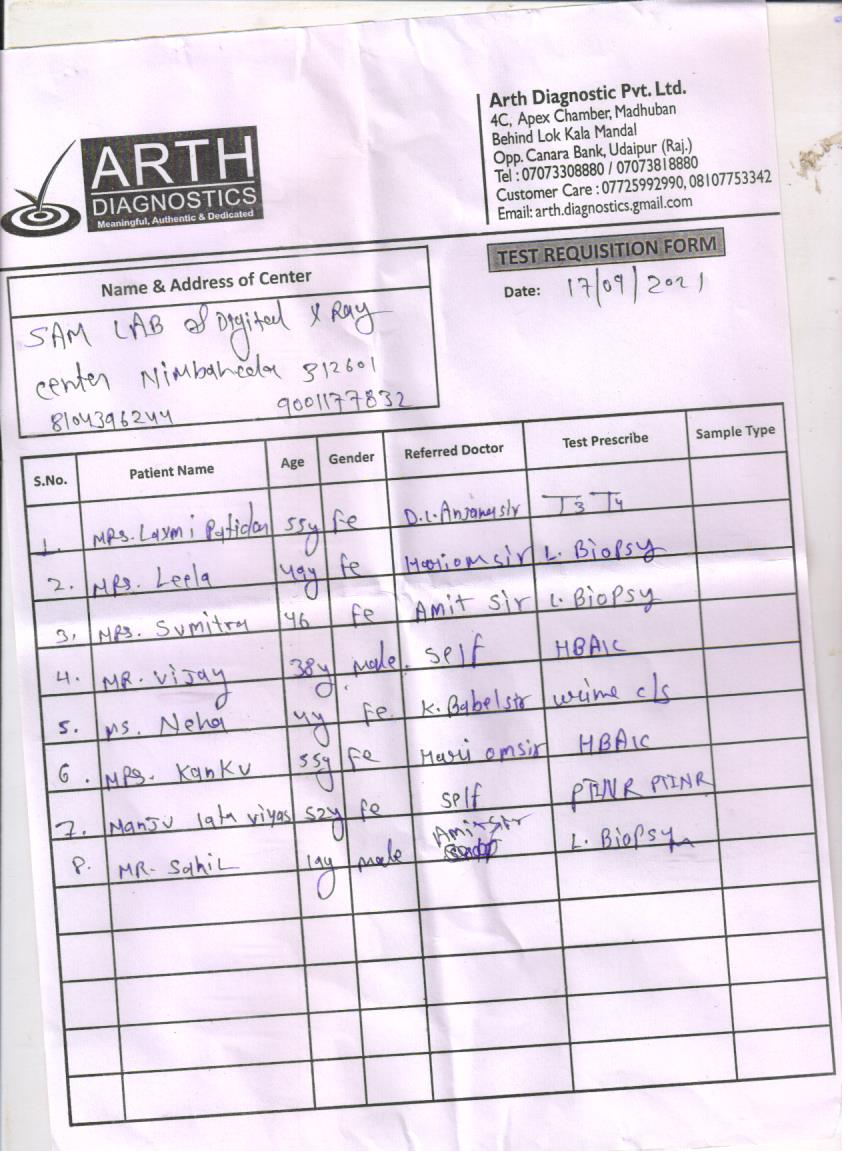 ARTH
DIAGNOSTICS
Meaningful, Authentic & Dedicated
Arth Diagnostic Pvt. Ltd.
4C, Apex Chamber, Madhuban
Behind Lok Kala Mandal
Opp. Canara Bank, Udaipur (Raj.)
Tel : 07073308880 / 07073818880
Customer Care : 07725992990, 08107753342
Email: arth.diagnostics.gmail.com
TEST REQUISITION FORM
Date: 17/09/2021
Name & Address of Center
SAM LAB & Digital X Ray
center Nimbaheda 312601
8104396244 9001177832
S.No. Patient Name Age Gender Referred Doctor Test Prescribe Sample Type
1. MRS. Laxmi Patidar 55y fe D.L. Anjana sir T3 T4
2. MRS. Leela 49y fe Hariom sir L. Biopsy
3. MRS. Sumitra 46 fe Amit Sir L. Biopsy
4. MR. Vijay 38y male. Self HBA1C
5. MS. Neha 4y fe. K. Babel sir urine c/s
6. MRS. Kanku 55y fe Hari om sir HBA1C
7. Manju lata viyas 52y fe self PTINR PTINR
8. MR. Sahil 19y male Amit sir L. Biopsy